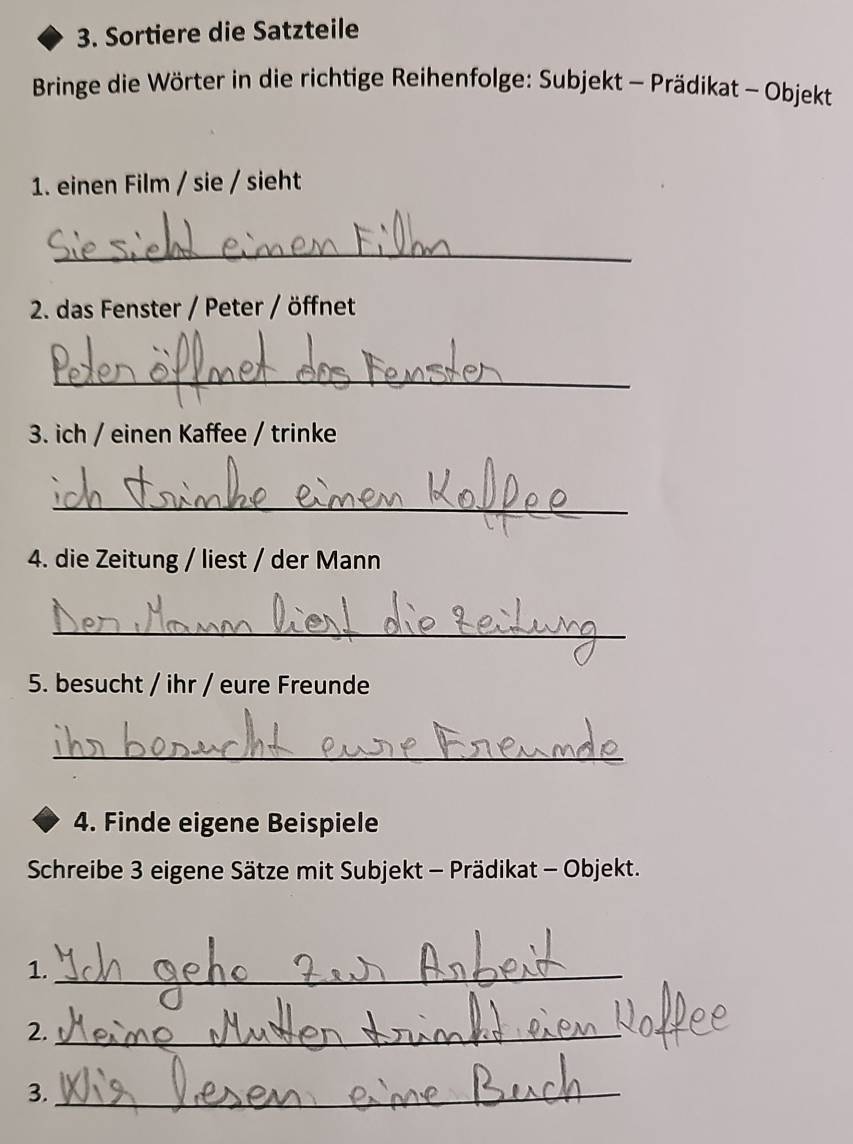 ◆ 3. Sortiere die Satzteile
Bringe die Wörter in die richtige Reihenfolge: Subjekt – Prädikat – Objekt
1. einen Film / sie / sieht
Sie sieht einen Film
2. das Fenster / Peter / öffnet
Peter öffnet das Fenster
3. ich / einen Kaffee / trinke
ich trinke einen Kaffee
4. die Zeitung / liest / der Mann
Der Mann liest die Zeitung
5. besucht / ihr / eure Freunde
ihr besucht eure Freunde
◆ 4. Finde eigene Beispiele
Schreibe 3 eigene Sätze mit Subjekt – Prädikat – Objekt.
1. Ich gehe zur Arbeit
2. Meine Mutter trinkt eien Kaffee
3. Wir lesen eine Buch